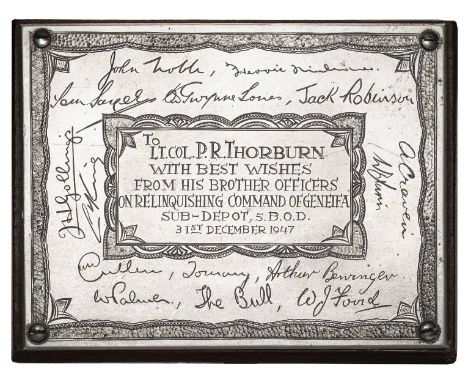 John Noble,
Sam Sarpel, Gwynne Jones, Jack Robinson
TO
LT. COL. P. R. THORBURN
WITH BEST WISHES
FROM HIS BROTHER OFFICERS
ON RELINQUISHING COMMAND OF GENEIFA
SUB-DEPOT, 5. B.O.D.
31ST DECEMBER 1947
A Craven
Cullen, Tommy, Arthur Berringer
W Palmer, The Bull, W J Foord